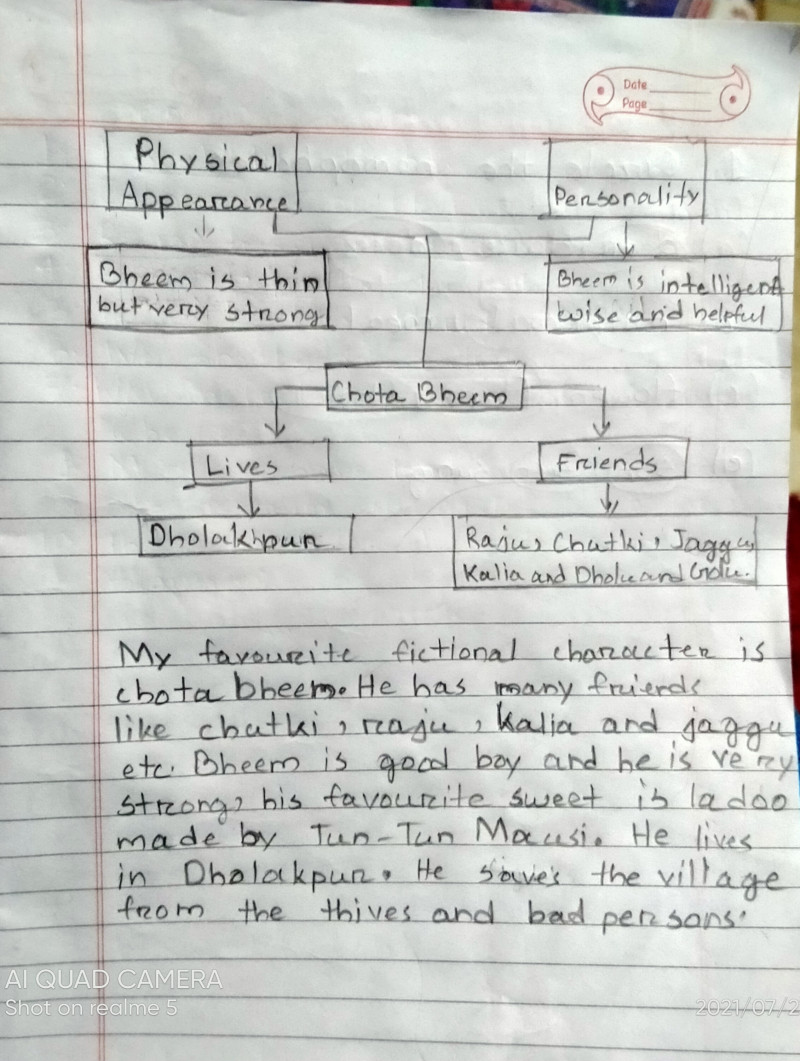 Date
Page
Physical
Appearance
Personality
Bheem is thin
but very strong
Bheem is intelligent
wise and helpful
Chota Bheem
Lives
Friends
Dholakhpur
Raju, Chutki, Jaggu,
Kalia and Dholu and Golu.
My favourite fictional character is
chota bheem. He has many friends
like chutki, raju, Kalia and jaggu
etc. Bheem is good boy and he is very
strong, his favourite sweet is ladoo
made by Tun-Tun Mausi. He lives
in Dholakpur. He saves the village
from the thives and bad persons.
AI QUAD CAMERA
Shot on realme 5
2021/07/2